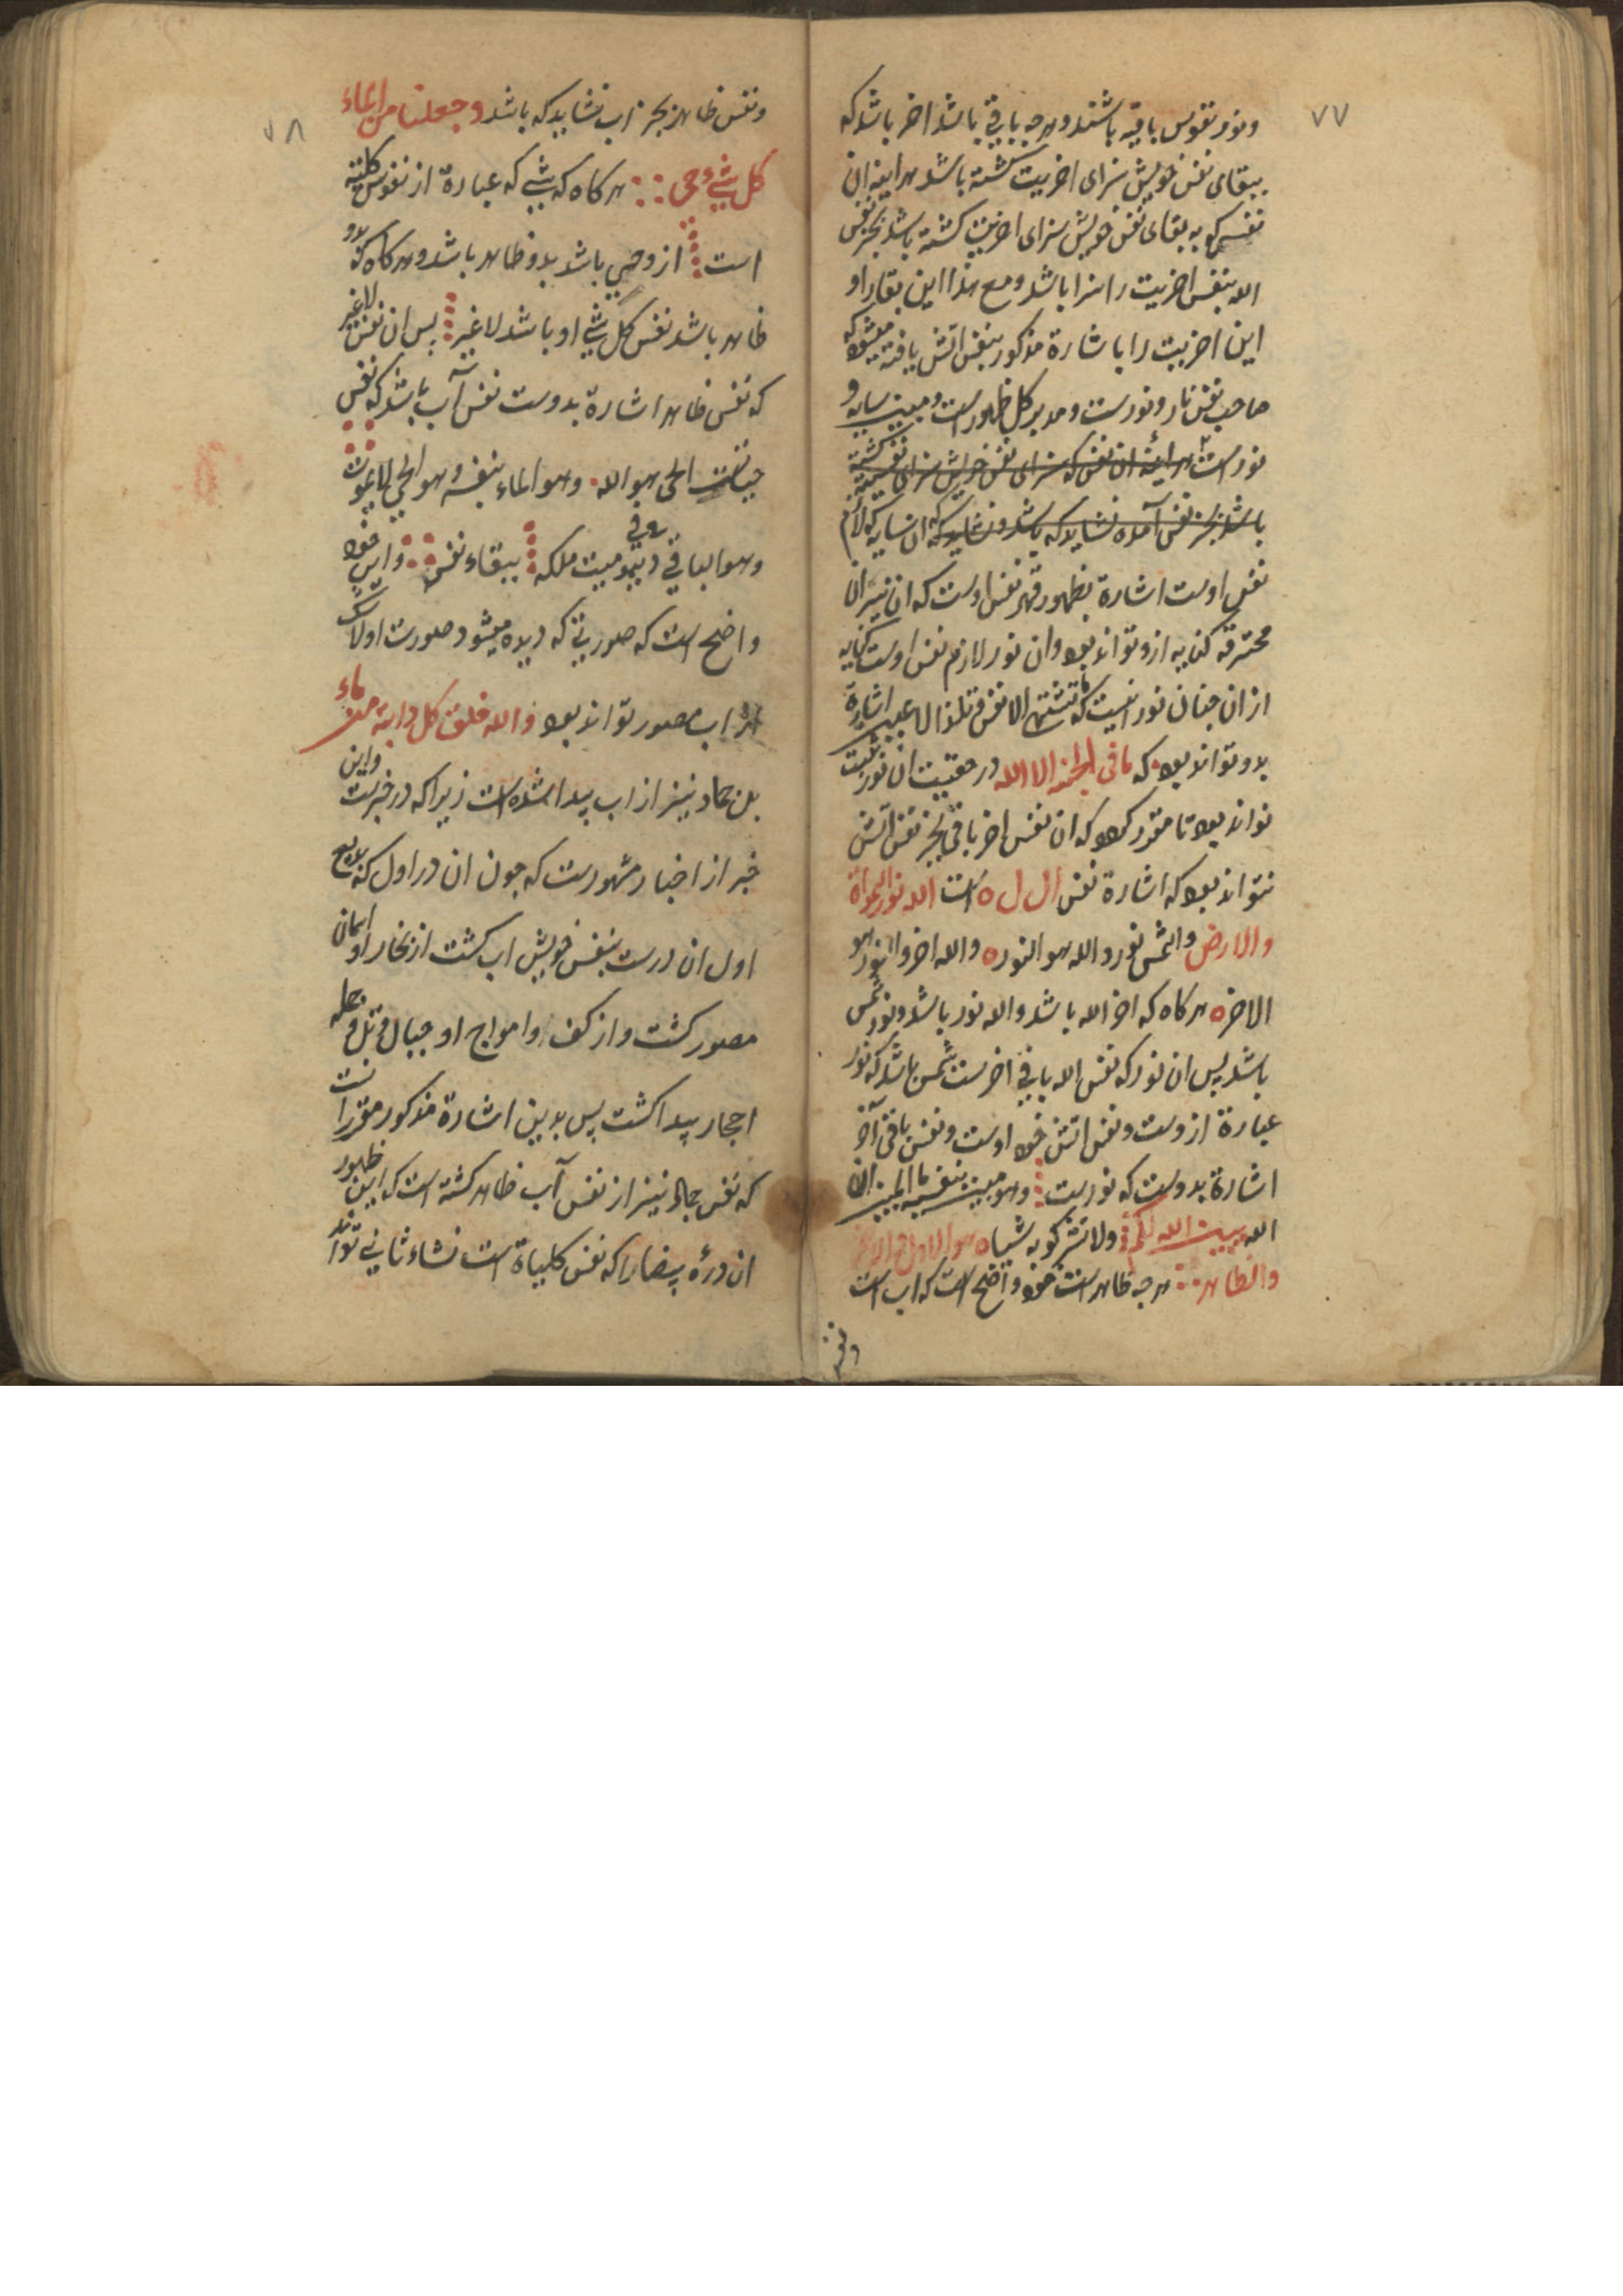 ۷۷
ونور نفوس باقیه باشند وهرچه باقی باشد اخر باشد که
ببقای نفس خویش سزای اخریت کشته باشد هراینه ان
نفس که به بقای نفس خویش سزای اخریت کشته باشد بجز نفس
الله بنفس اخریت را سزا باشد ومع هذا این بقا را و
این اخریت را باشارة مذکور بنفس اتش یافته میشود که
صاحب نفس نار ونورست ومدبر کل ظهورست ومبین سایه و
نورست هراینه ان نفس که سزای نفس خویش سزای نفسیة کشته
باشد بجز نفس آمده نشاید که باشد ونشاید که ان سایه که لازم
نفس اوست اشارة بظهور قهر نفس اوست که ان نیران
محترقه کنایه ازو تواند بود وان نور لازم نفس اوست کنایه
ازان جنان نورانیست که ما تشتهی الانفس وتلذ الاعین اشارة
بدو تواند بود که ما فی الجنه الا الله در حقیقت ان نور
تواند بود تا مقرر کردد که ان نفس اخر باقی بجز نفس اتش
نتواند بود که اشارة نفس ال ل ه است الله نور السموات
والارض والشمس نور والله هو النور ه والله اخر والنور هو
الاخر ه هرکاه که اخر الله باشد والله نور باشد ونور شمس
باشد پس ان نور که نفس الله باقی اخرست شمس باشد که نور
عبارة ازوست ونفس اتش خود اوست ونفس باقی آخر
اشارة بدوست که نورست وهو مبین بنفسه المبین ان
الله یبین الله لکم ولا تشرکو به شیاه هو الاول والاخر
والظاهر هرچه ظاهرست خود واضح است که اب است
ونفس
۷۸
ونفس ظاهر بجز اب نشاید که باشد وجعلنا من الماء
کل شیء حی هرکاه که شیی که عبارة از نفوس کلیته
است ازو حی باشد بدو ظاهر باشد وهرکاه که بدو
ظاهر باشد نفس کل شیی او باشد لا غیر پس ان نفس لا غیر
که نفس ظاهر اشارة بدوست نفس آب باشد که نفس
حیاتست الحی هو الله وهو الماء بنفسه وهو الحی لا یموت
وهو الباقی فی دیمومیت ملکه ببقاء نفسه واین خود
واضح است که صورتی که دیده میشود صورت اولا
از اب مصور تواند بود والله خلق کل دابة من ماء
بل جماد نیز از اب پیدا شده است زیرا که در خبرست واین
خبر از اخبار مشهورست که چون ان در اول که بدیع
اول ان درست بنفس خویش اب کشت از بخار او اسمان
مصور کشت واز کف وامواج او جبال وتل وجمله
احجار پیدا کشت پس بدین اشارة مذکور مقررا ست
که نفس جماد نیز از نفس آب ظاهر کشته است که این ظهور
ان درهٔ بیضارا که نفس کلیاة است نشاء ثانی تواند